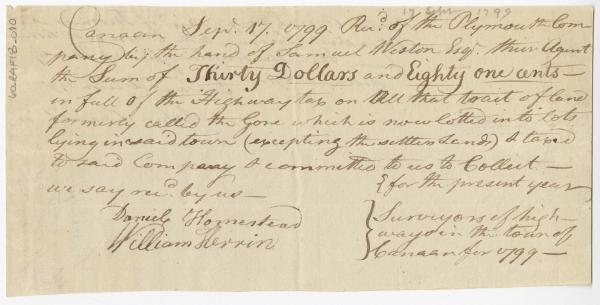 17 Sept 1799
Canaan Sepr. 17. 1799 Recd. of the Plymouth Com-
pany by the hand of Samuel Weston Esqr. their Agent
the Sum of Thirty Dollars and Eighty one cents —
in full of the Highway tax on All that trait of land
formerly called the Gore which is now lotted into lots
lying in said town (excepting the settlers Lands) & taxed
to said Company & committed to us to Collect —
we say recd. by us — { for the present year
Daniel Homestead
William Herrin
} Surveyors of high-
ways in the town of
Canaan for 1799 —